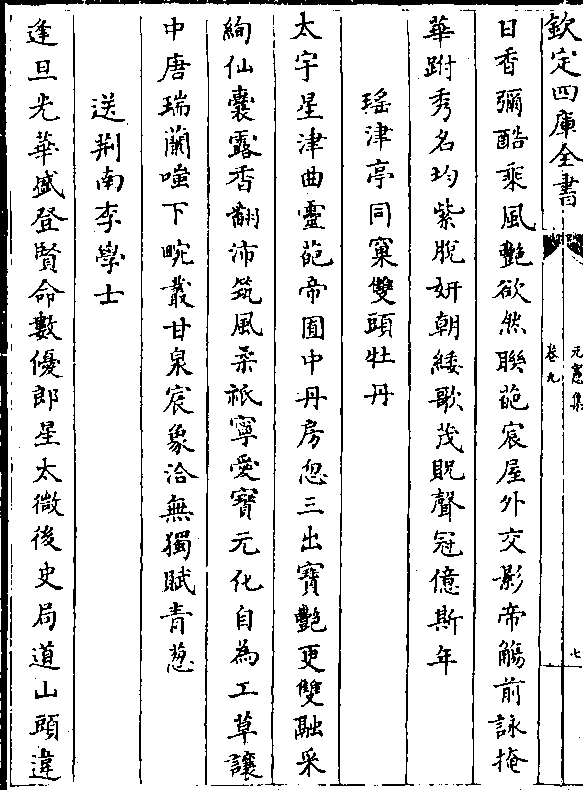 欽定四庫全書
元憲集
卷九
七
日香彌酷乘風艷欲然聯葩宸屋外交影帝觴前詠掩
華跗秀名均紫脫妍朝緌歌茂貺聲冠億斯年
瑤津亭同窠雙頭牡丹
太宇星津曲靈葩帝囿中丹房忽三出寶艷更雙融采
絢仙囊露香翻沛筑風柔祇寧愛寶元化自為工草讓
中唐瑞蘭嗤下畹叢甘泉宸象洽無獨賦青葱
送荆南李學士
逢旦光華盛登賢命數優郎星太微後史局道山頭違